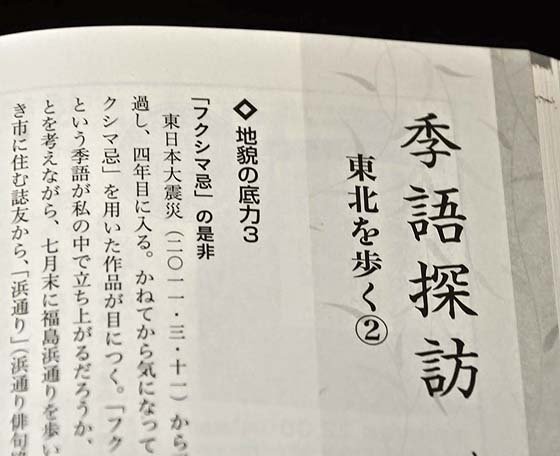 季語探訪
東北を歩く②
◇地貌の底力3
「フクシマ忌」の是非
東日本大震災（二〇一一・三・十一）から
過し、四年目に入る。かねてから気になって
クシマ忌」を用いた作品が目につく。「フク
という季語が私の中で立ち上がるだろうか、
とを考えながら、七月末に福島浜通りを歩い
き市に住む誌友から、「浜通り」（浜通り俳句